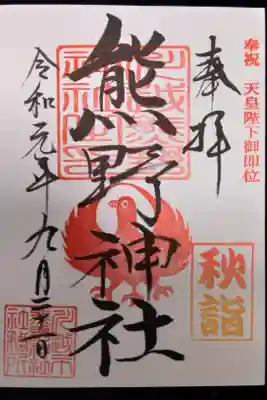 奉祝 天皇陛下御即位
奉拝
熊野神社
令和元年九月二十一日
秋詣